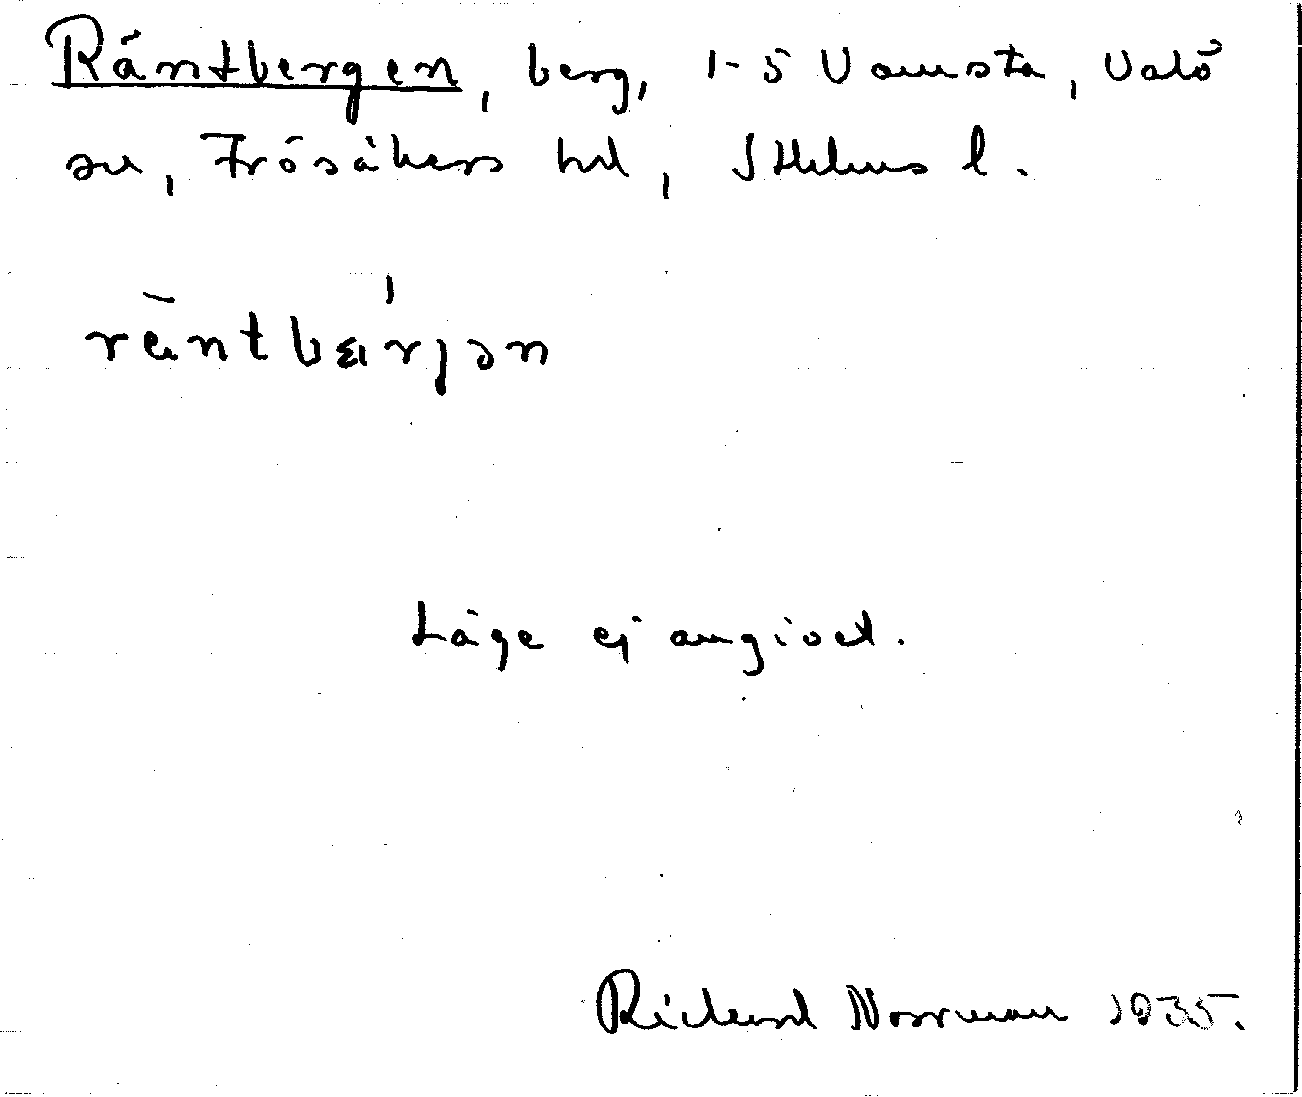 Räntbergen, berg, 1-5 Vamsta, Valö
sn, Frösåkers hd, Sthlms l.
räntbärjən
Läge ej angivet.
Richard Norrman 1935.